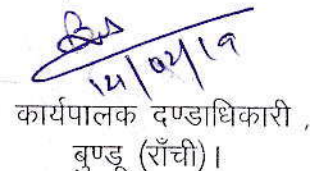 14/04/19
कार्यपालक दण्डाधिकारी,
बुण्डू (राँची)।